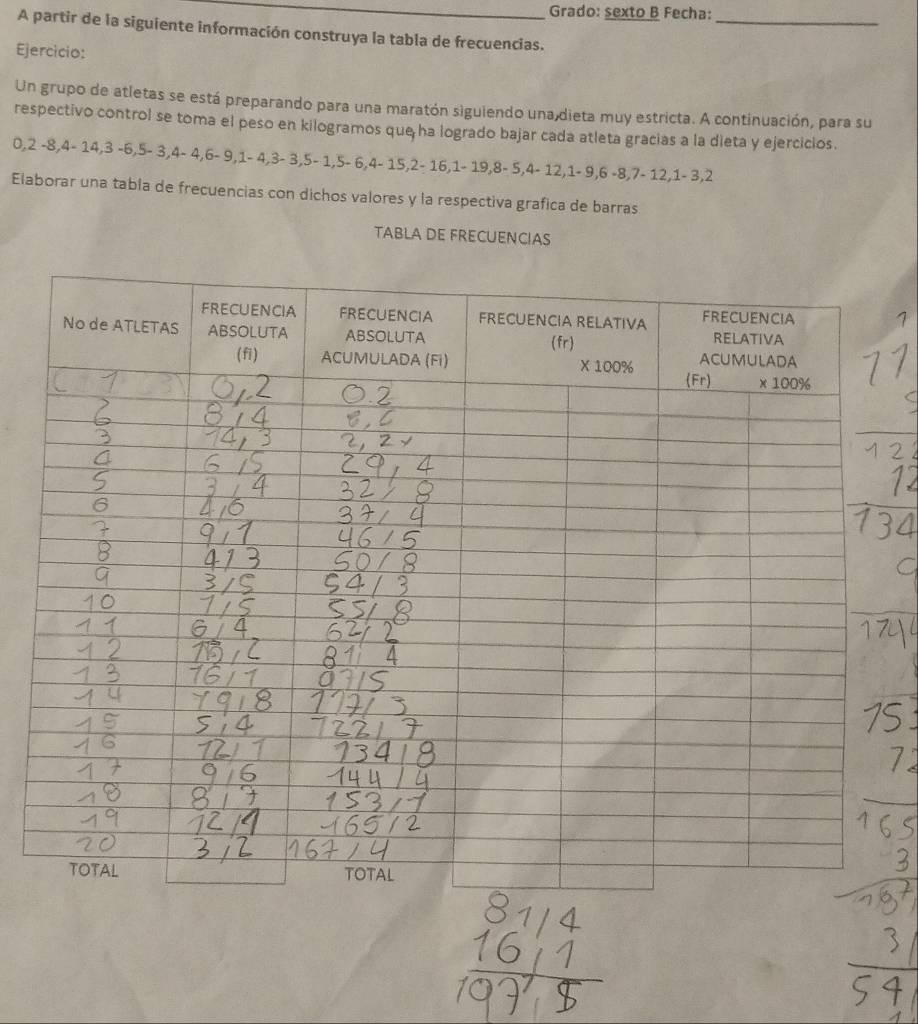 Grado: sexto B Fecha:
A partir de la siguiente información construya la tabla de frecuencias.
Ejercicio:
Un grupo de atletas se está preparando para una maratón siguiendo una dieta muy estricta. A continuación, para su
respectivo control se toma el peso en kilogramos que ha logrado bajar cada atleta gracias a la dieta y ejercicios.
0,2 -8,4- 14,3 -6,5- 3,4- 4,6- 9,1- 4,3- 3,5- 1,5- 6,4- 15,2- 16,1- 19,8- 5,4- 12,1- 9,6 -8,7- 12,1- 3,2
Elaborar una tabla de frecuencias con dichos valores y la respectiva grafica de barras
TABLA DE FRECUENCIAS
No de ATLETAS FRECUENCIA ABSOLUTA (fi) FRECUENCIA ABSOLUTA ACUMULADA (Fi) FRECUENCIA RELATIVA (fr) X 100% FRECUENCIA RELATIVA ACUMULADA (Fr) x 100%
1 0,2 0.2
2 8,4
3 14,3
4 6,5 29,4
5 3,4 32,8
6 4,6 37,4
7 9,1 46,5
8 4,3 50,8
9 3,5 54,3
10 1,5 55,8
11 6,4 62,2
12 15,2 81,4
13 16,1 97,5
14 19,8 117,3
15 5,4 122,7
16 12,1 134,8
17 9,6 144,4
18 8,7 153,1
19 12,1 165,2
20 3,2 167,4
TOTAL TOTAL
81,4
16,1
197,5